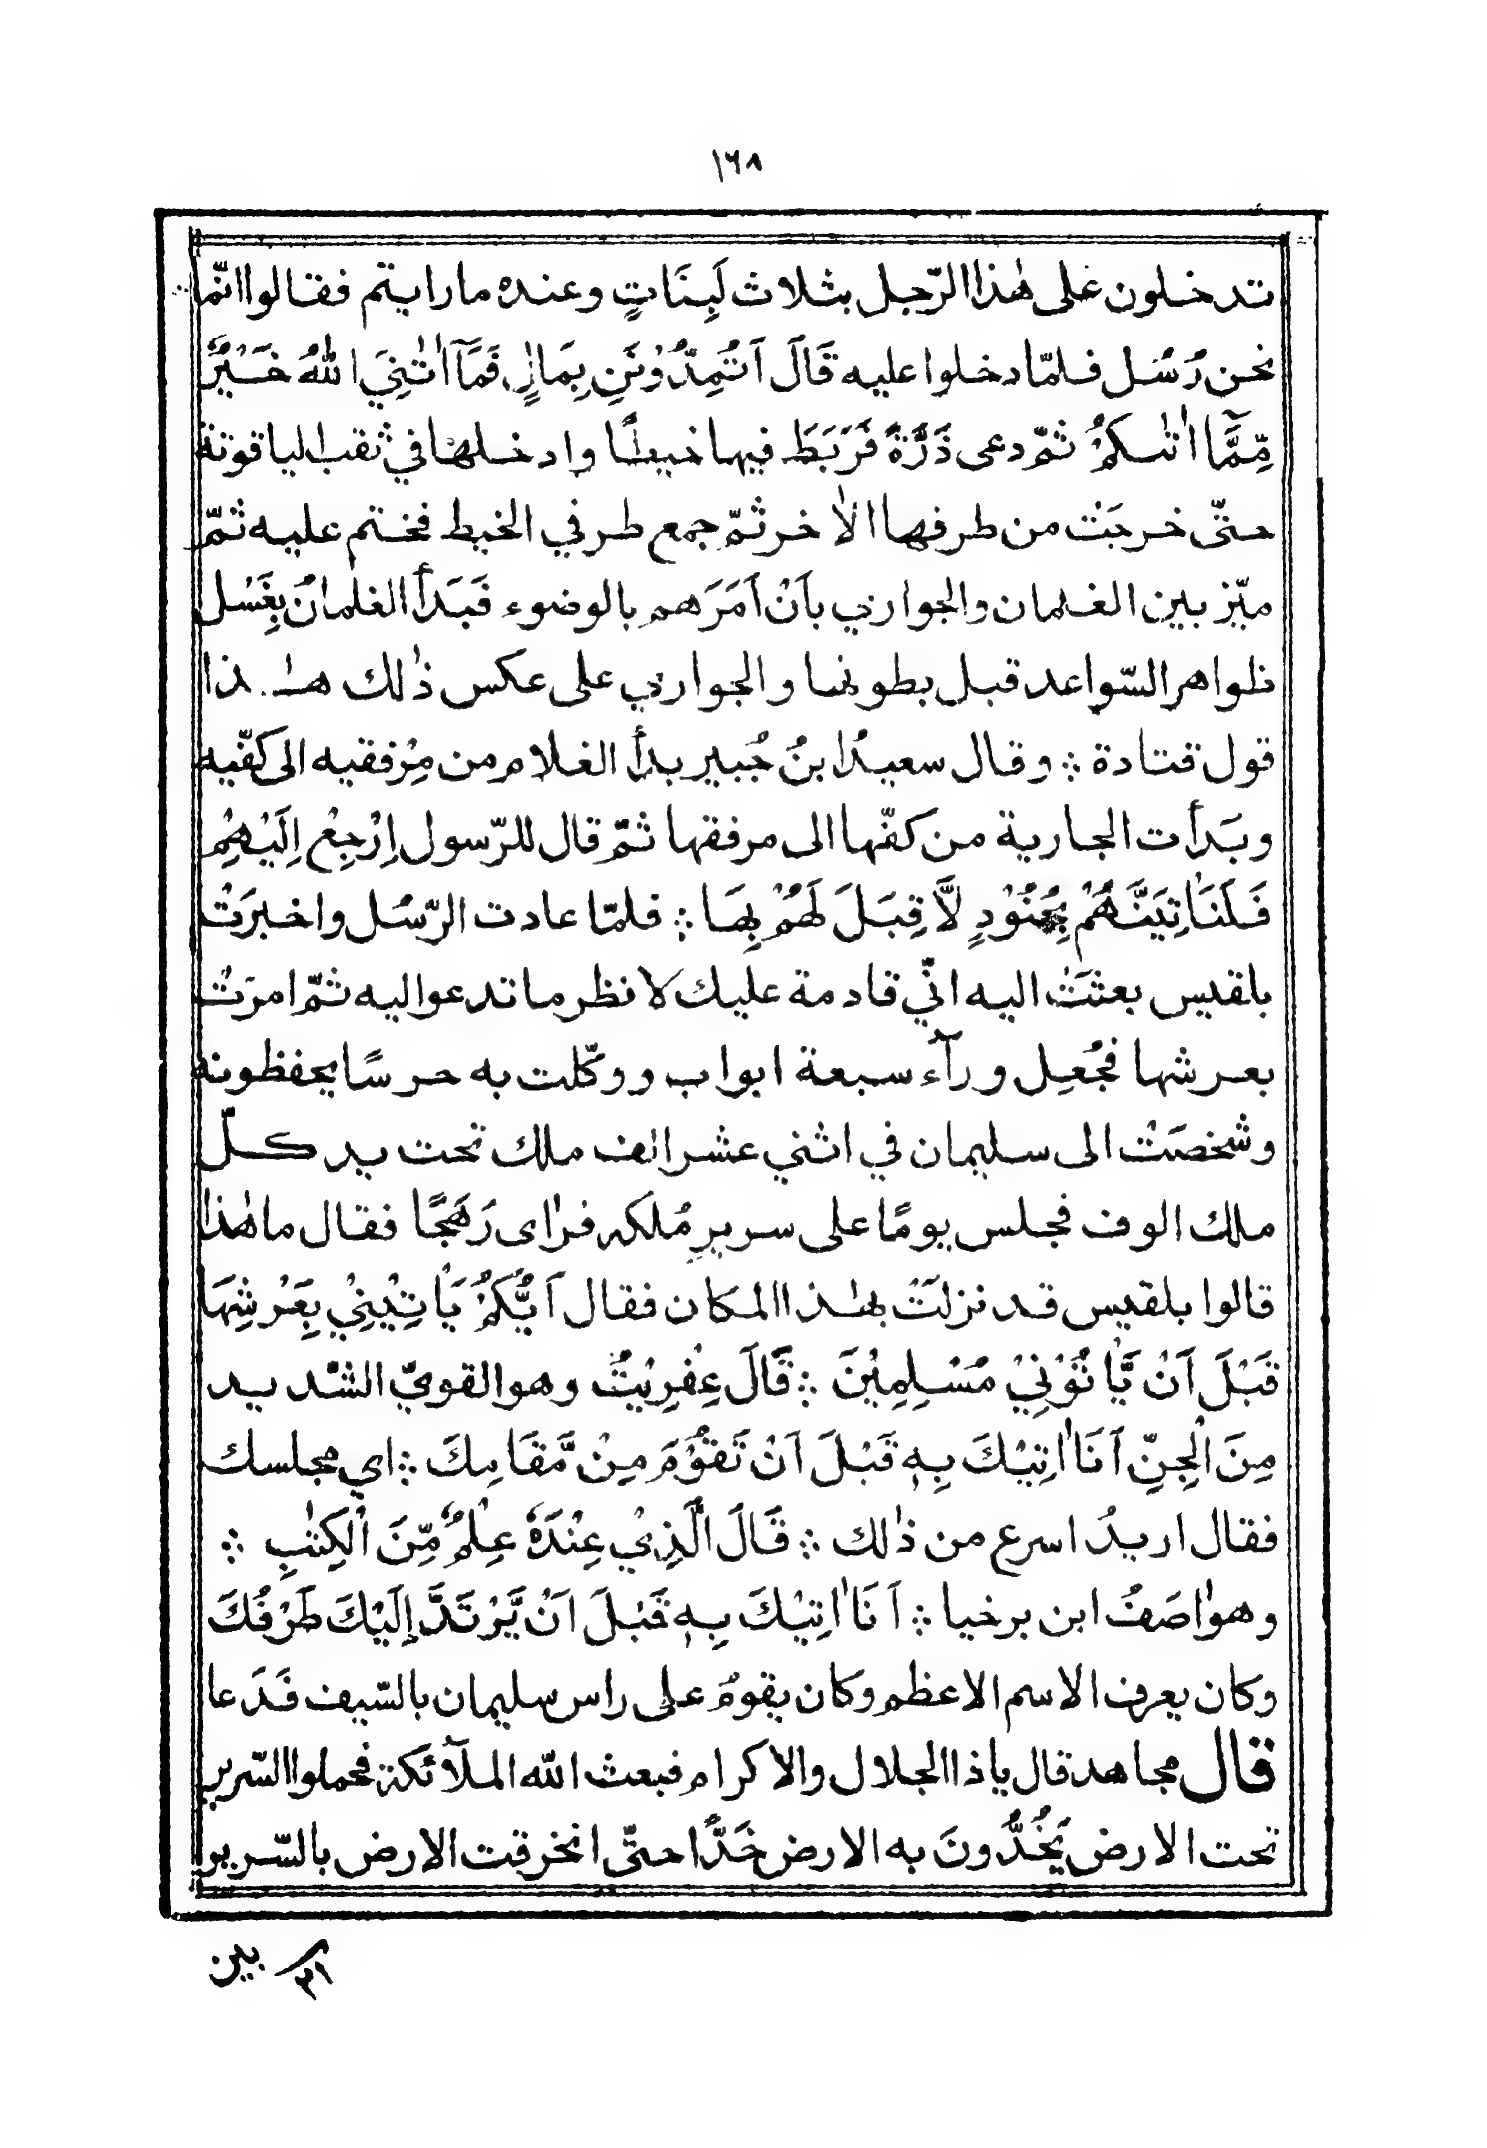 ١٦٨
تدخلون على هٰذا الرّجل بثلاث لَبِنَاتٍ وعنده ما رايتم فقالوا انّما
نحن رُسُل فلمّا دخلوا عليه قَالَ اَتُمِدُّوْنَنِ بِمَالٍ فَمَآ اٰتٰنِيَ اللهُ خَيْرٌ
مِّمَّآ اٰتٰىكُمْ ثمّ دعى ذَرَّةً فَرَبَطَ فيها خيطًا وادخلها في ثقب الياقوتة
حتّى خرجَتْ من طرفها الاٰخر ثمّ جمع طرفي الخيط فختم عليه ثمّ
ميّز بين الغلمان والجواري بأَنْ اَمَرَهم بالوضوء فَبَدأَ الغلمانُ بِغَسْل
ظواهر السّواعد قبل بطونها والجواري على عكس ذٰلك هٰذا
قول قتادة ؞ وقال سعيدُ ابنُ جُبير بدأَ الغلام من مِرْفقيه الى كفّيه
وبَدأت الجارية من كفّها الى مرفقها ثمّ قال للرّسول اِرْجِعْ اِلَيْهِمْ
فَلَنَاْتِيَنَّهُمْ بِجُنُوْدٍ لَّا قِبَلَ لَهُمْ بِهَا ؞ فلمّا عادت الرّسُل واخبرَتْ
بلقيس بعثَتْ اليه انّي قادمة عليك لانظر ما تدعوا اليه ثمّ امرَتْ
بعرشها فجُعِل ورآء سبعة ابواب ووكّلت به حرسًا يحفظونه
وشخصَتْ الى سليمان في اثني عشر الف ملك تحت يد كلّ
ملك الوف فجلس يومًا على سرير مُلكه فرٰاى رَهَجًا فقال ما هٰذا
قالوا بلقيس قد نزلَتْ بهٰذا المكان فقال اَيُّكُمْ يَاْتِيْنِيْ بِعَرْشِهَا
قَبْلَ اَنْ يَّاْتُوْنِيْ مُسْلِمِيْنَ ؞ قَالَ عِفْرِيْتٌ وهو القويّ الشّديد
مِنَ الْجِنِّ اَنَا اٰتِيْكَ بِهٖ قَبْلَ اَنْ تَقُوْمَ مِنْ مَّقَامِكَ ؞ اي مجلسك
فقال اريدُ اسرع من ذٰلك ؞ قَالَ الَّذِيْ عِنْدَهٗ عِلْمٌ مِّنَ الْكِتٰبِ ؞
وهو اٰصَفُ ابن برخيا ؞ اَنَا اٰتِيْكَ بِهٖ قَبْلَ اَنْ يَّرْتَدَّ إِلَيْكَ طَرْفُكَ
وكان يعرف الاسم الاعظم وكان يقومُ على راس سليمان بالسّيف فَدَعا
قال مجاهد قال ياذا الجلال والاكرام فبعث الله الملآئكة فحملوا السّرير
تحت الارض يَخُدُّونَ به الارض خَدًّا حتّى انخرقت الارض بالسّرير
٣١ بين